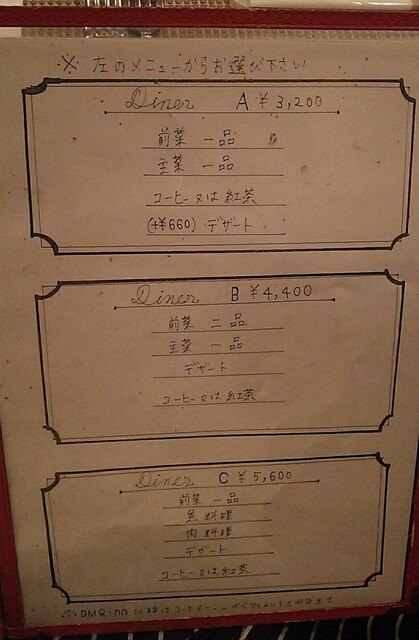 ※ 左のメニューからお選び下さい
Diner A ¥3,200
前菜 一品
主菜 一品
コーヒー又は紅茶
(+¥660) デザート
Diner B ¥4,400
前菜 二品
主菜 一品
デザート
コーヒー又は紅茶
Diner C ¥5,600
前菜 一品
魚料理
肉料理
デザート
コーヒー又は紅茶